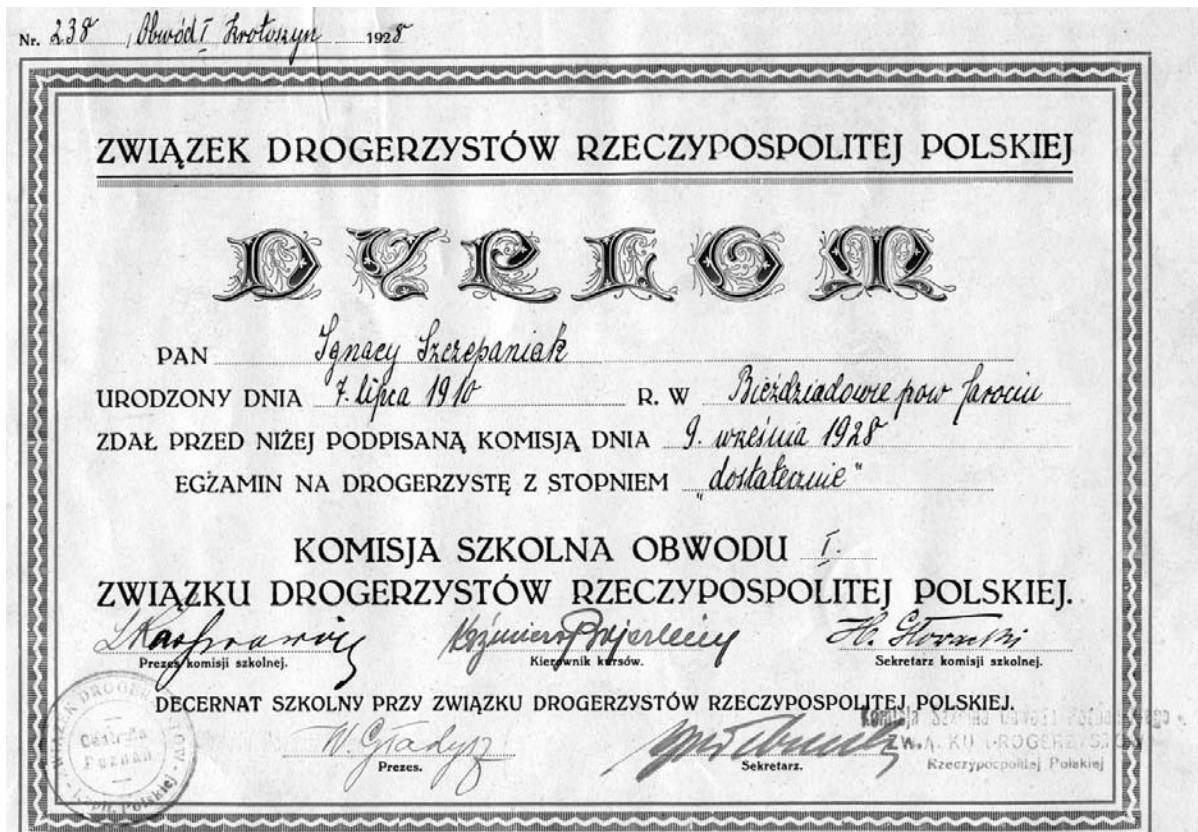 Nr. 238 Obwód I Krotoszyn 1928
ZWIĄZEK DROGERZYSTÓW RZECZYPOSPOLITEJ POLSKIEJ
DYPLOM
PAN Ignacy Szczepaniak
URODZONY DNIA 7. lipca 1910 R. W Bieździadowie pow Jarocin
ZDAŁ PRZED NIŻEJ PODPISANĄ KOMISJĄ DNIA 9. września 1928
EGZAMIN NA DROGERZYSTĘ Z STOPNIEM „dostatecznie"
KOMISJA SZKOLNA OBWODU I.
ZWIĄZKU DROGERZYSTÓW RZECZYPOSPOLITEJ POLSKIEJ.
Prezes komisji szkolnej. Kierownik kursów. Sekretarz komisji szkolnej.
DECERNAT SZKOLNY PRZY ZWIĄZKU DROGERZYSTÓW RZECZYPOSPOLITEJ POLSKIEJ.
W. Gładysz
Prezes. Sekretarz.
ZWIĄZEK DROGERZYSTÓW
Centrala
Poznań
Rzplit. Polskiej
Komisja Szkolna
Rzeczypospolitej Polskiej